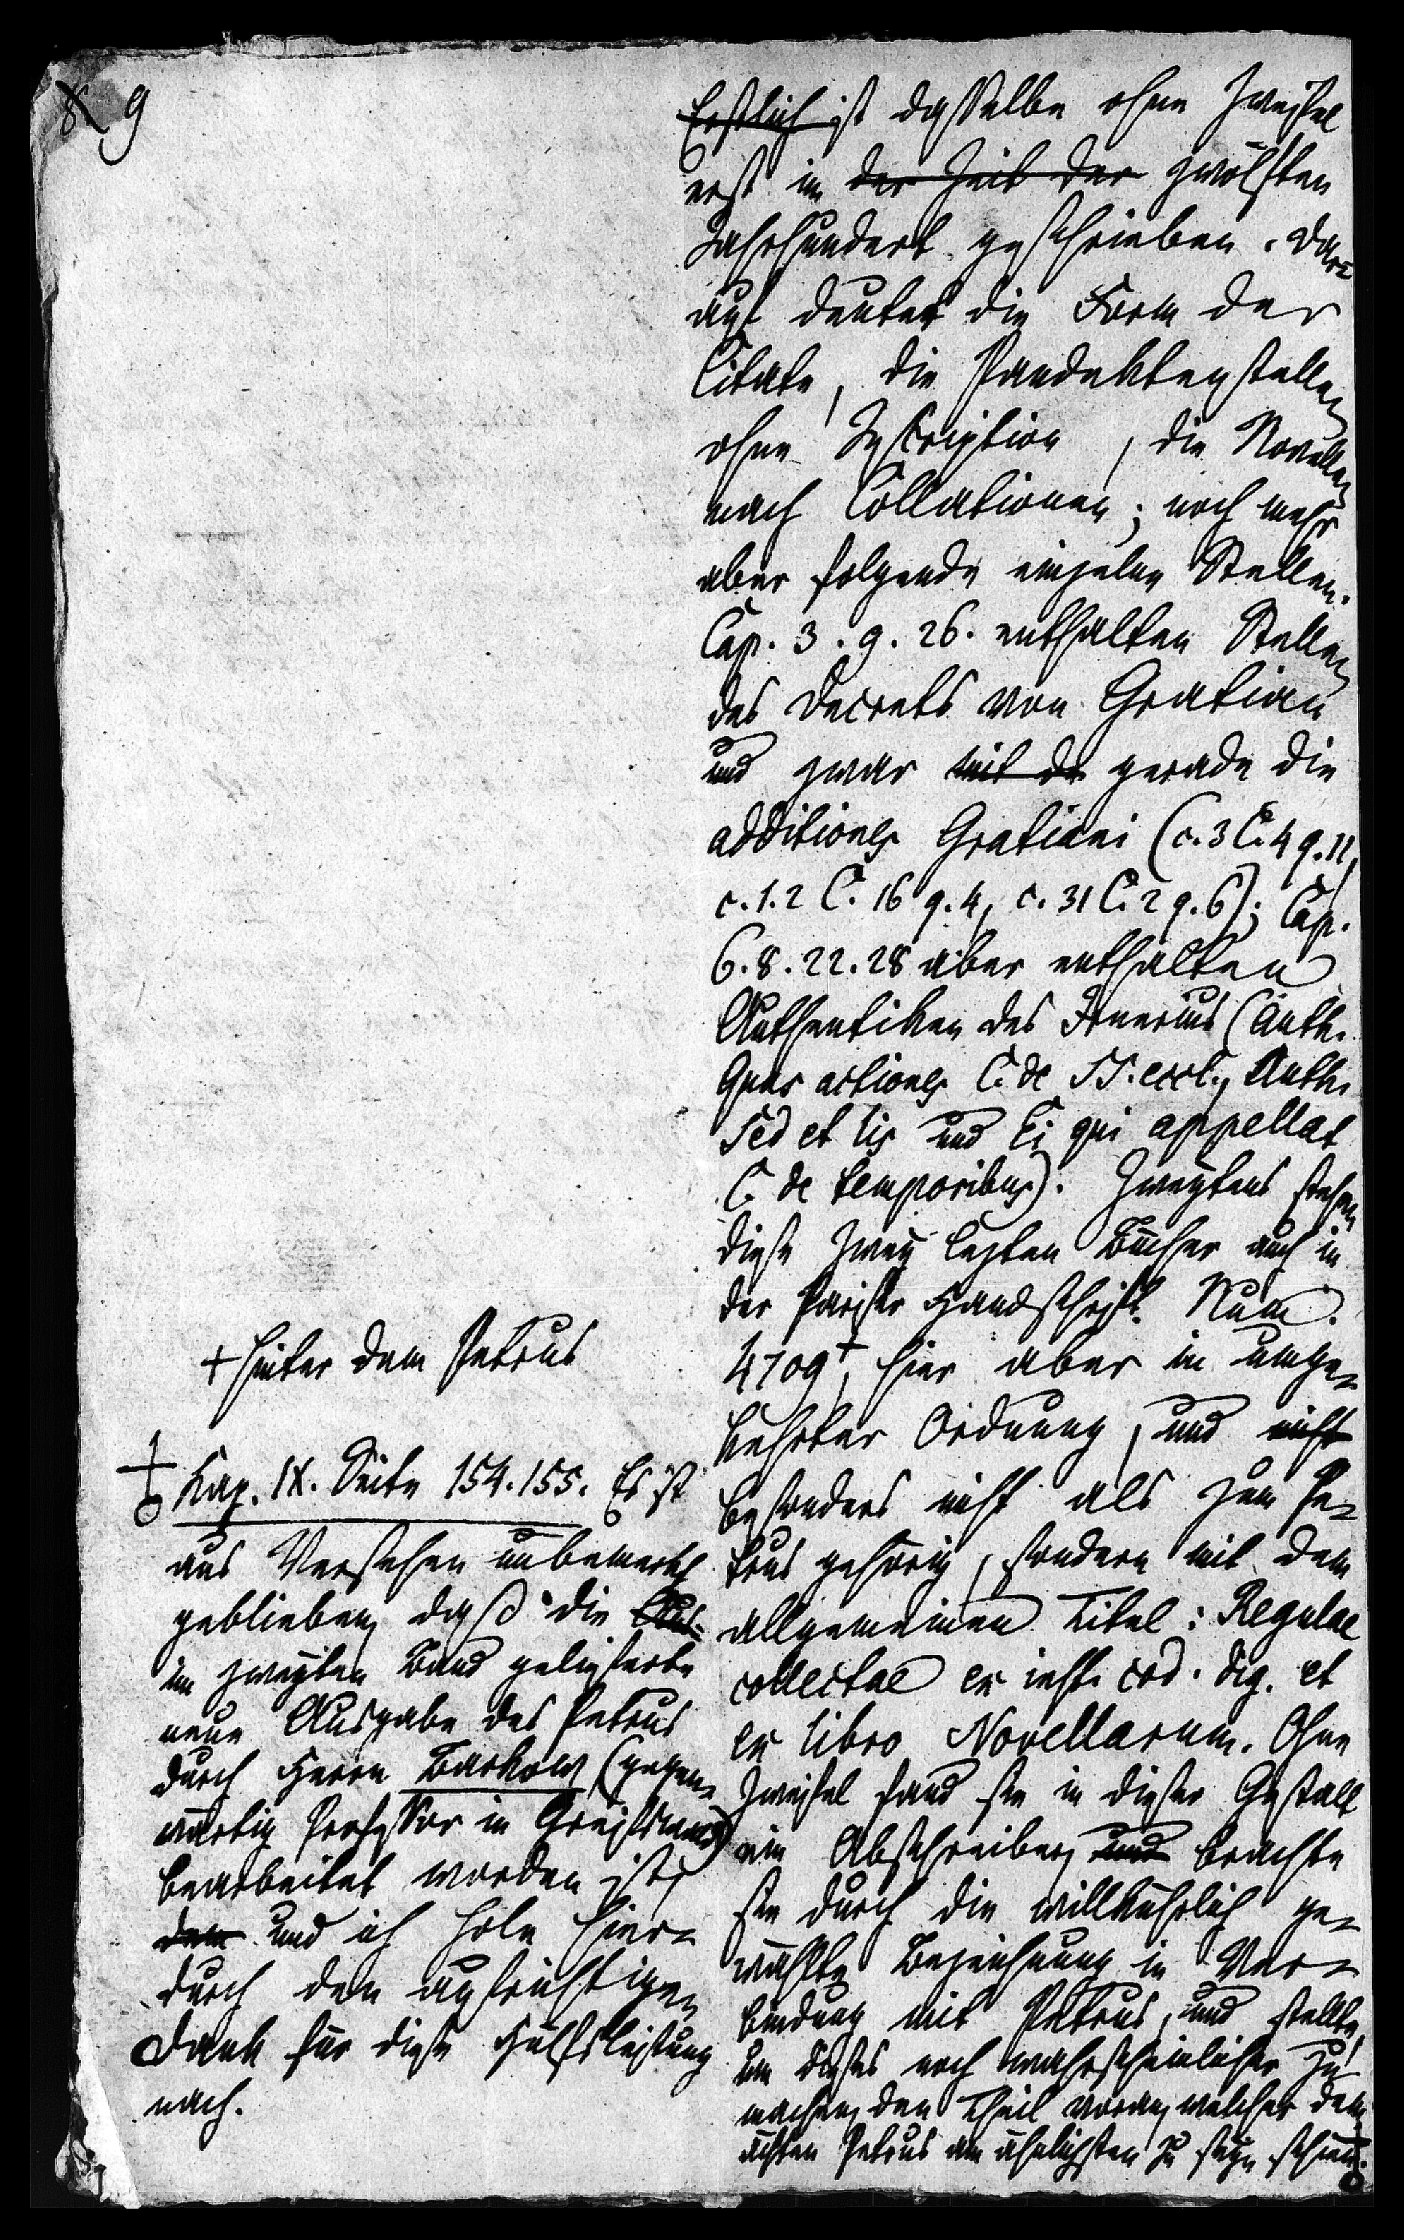 9
Erstlich ist dasselbe ohne Zweifel
erst im der Zeit der zwölften
Jahrhundert geschrieben. Dar-
auf deutet die Form der
Citate, die Pandektenstellen
ohne Inscription, die Novellen
nach Collationen; noch mehr
aber folgende einzelne Stellen.
Cap. 3. 9. 26. enthalten Stellen
des Decrets von Gratian
und zwar mit de gerade die
additiones Gratiani (c. 3 C. 4 q. 11,
c. 1. 2 C. 16 q. 4, c. 31 C. 2 q. 6); Cap.
6. 8. 22. 28 aber enthalten
Authentiken des Irnerius (Auth.
Quas actiones C. de SS. eccl., Auth.
Sed et lis und Ei qui appellat
C. de temporibus). Zweytens stehen
diese zwey letzten Bücher auch in
der Pariser Handschrift. Num.
4709+, hier aber in umge-
kehrter Ordnung, und nicht
besonders nicht als zum Pe-
trus gehörig, sondern mit dem
allgemeinen Titel: Regulae
collectae ex inst. cod. dig. et
ex libro Novellarum. Ohne
Zweifel fand sie in dieser Gestalt
ein Abschreiber, und brachte
sie durch die willkührlich ge-
wählte Bezeichnung in Ver-
bindung mit Petrus, und stellte,
um dieses noch wahrscheinlicher zu
machen, den Theil voran, welcher dem
ächten Petrus am ähnlichsten zu seyn schien.
+ hinter dem Petrus
Kap. IX. Seite 154. 155. Es ist
aus Versehen unbemerkt
geblieben, daß die Aus-
im zweyten Band gelieferte
neue Ausgabe des Petrus
durch Herrn Barkow (gegen-
wärtig Professor in Greifswald)
bearbeitet worden ist,
dem und ich hole hier-
durch den aufrichtigen
Dank für diese Hülfsleistung
nach.